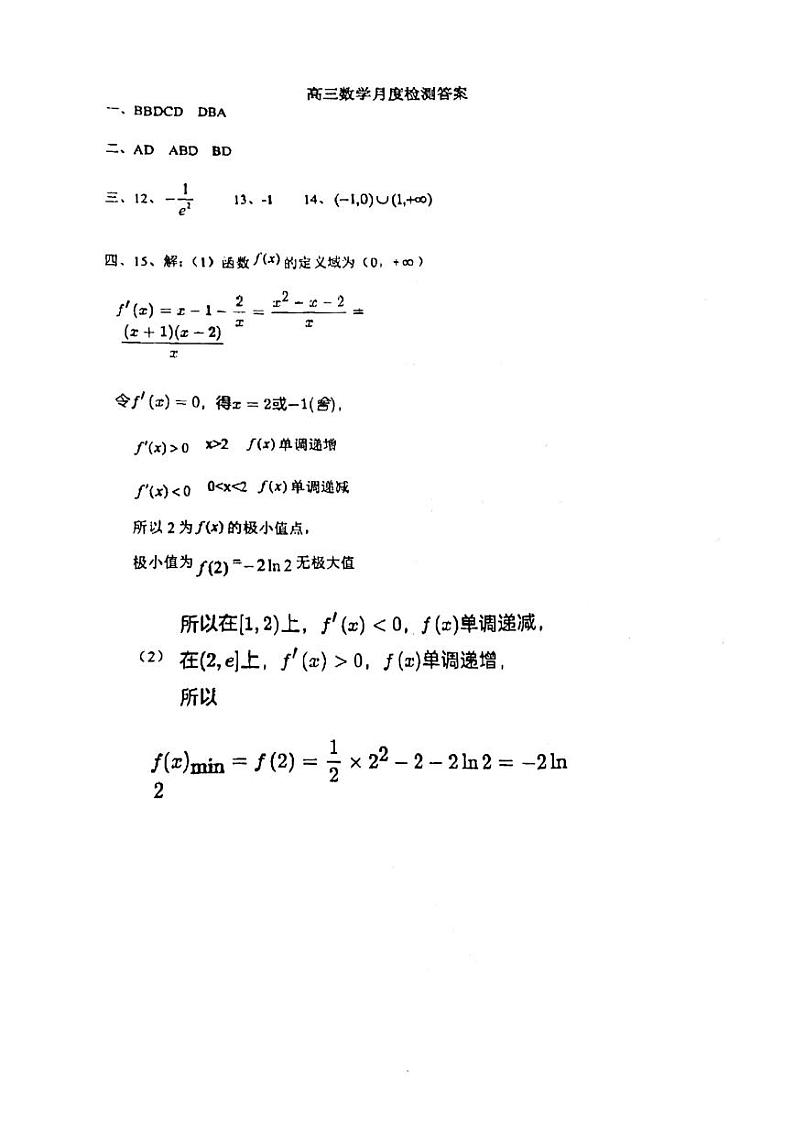 高三数学月度检测答案
一、BBDCD DBA
二、AD ABD BD
三、12、$-\frac{1}{e^2}$ 13、-1 14、(−1,0)∪(1,+∞)
四、15、解：（1）函数 f(x) 的定义域为（0，+∞）
$f'(x) = x - 1 - \frac{2}{x} = \frac{x^2 - x - 2}{x} =$
$\frac{(x + 1)(x - 2)}{x}$
令f′(x) = 0，得x = 2或−1(舍)，
f′(x) > 0 x>2 f(x) 单调递增
f′(x) < 0 0<x<2 f(x) 单调递减
所以 2 为 f(x) 的极小值点，
极小值为 f(2) = −2 ln 2 无极大值
所以在[1, 2)上，f′(x) < 0，f(x)单调递减，
（2） 在(2, e]上，f′(x) > 0，f(x)单调递增，
所以
$f(x)_{\min} = f(2) = \frac{1}{2} \times 2^2 - 2 - 2\ln 2 = -2\ln$
2